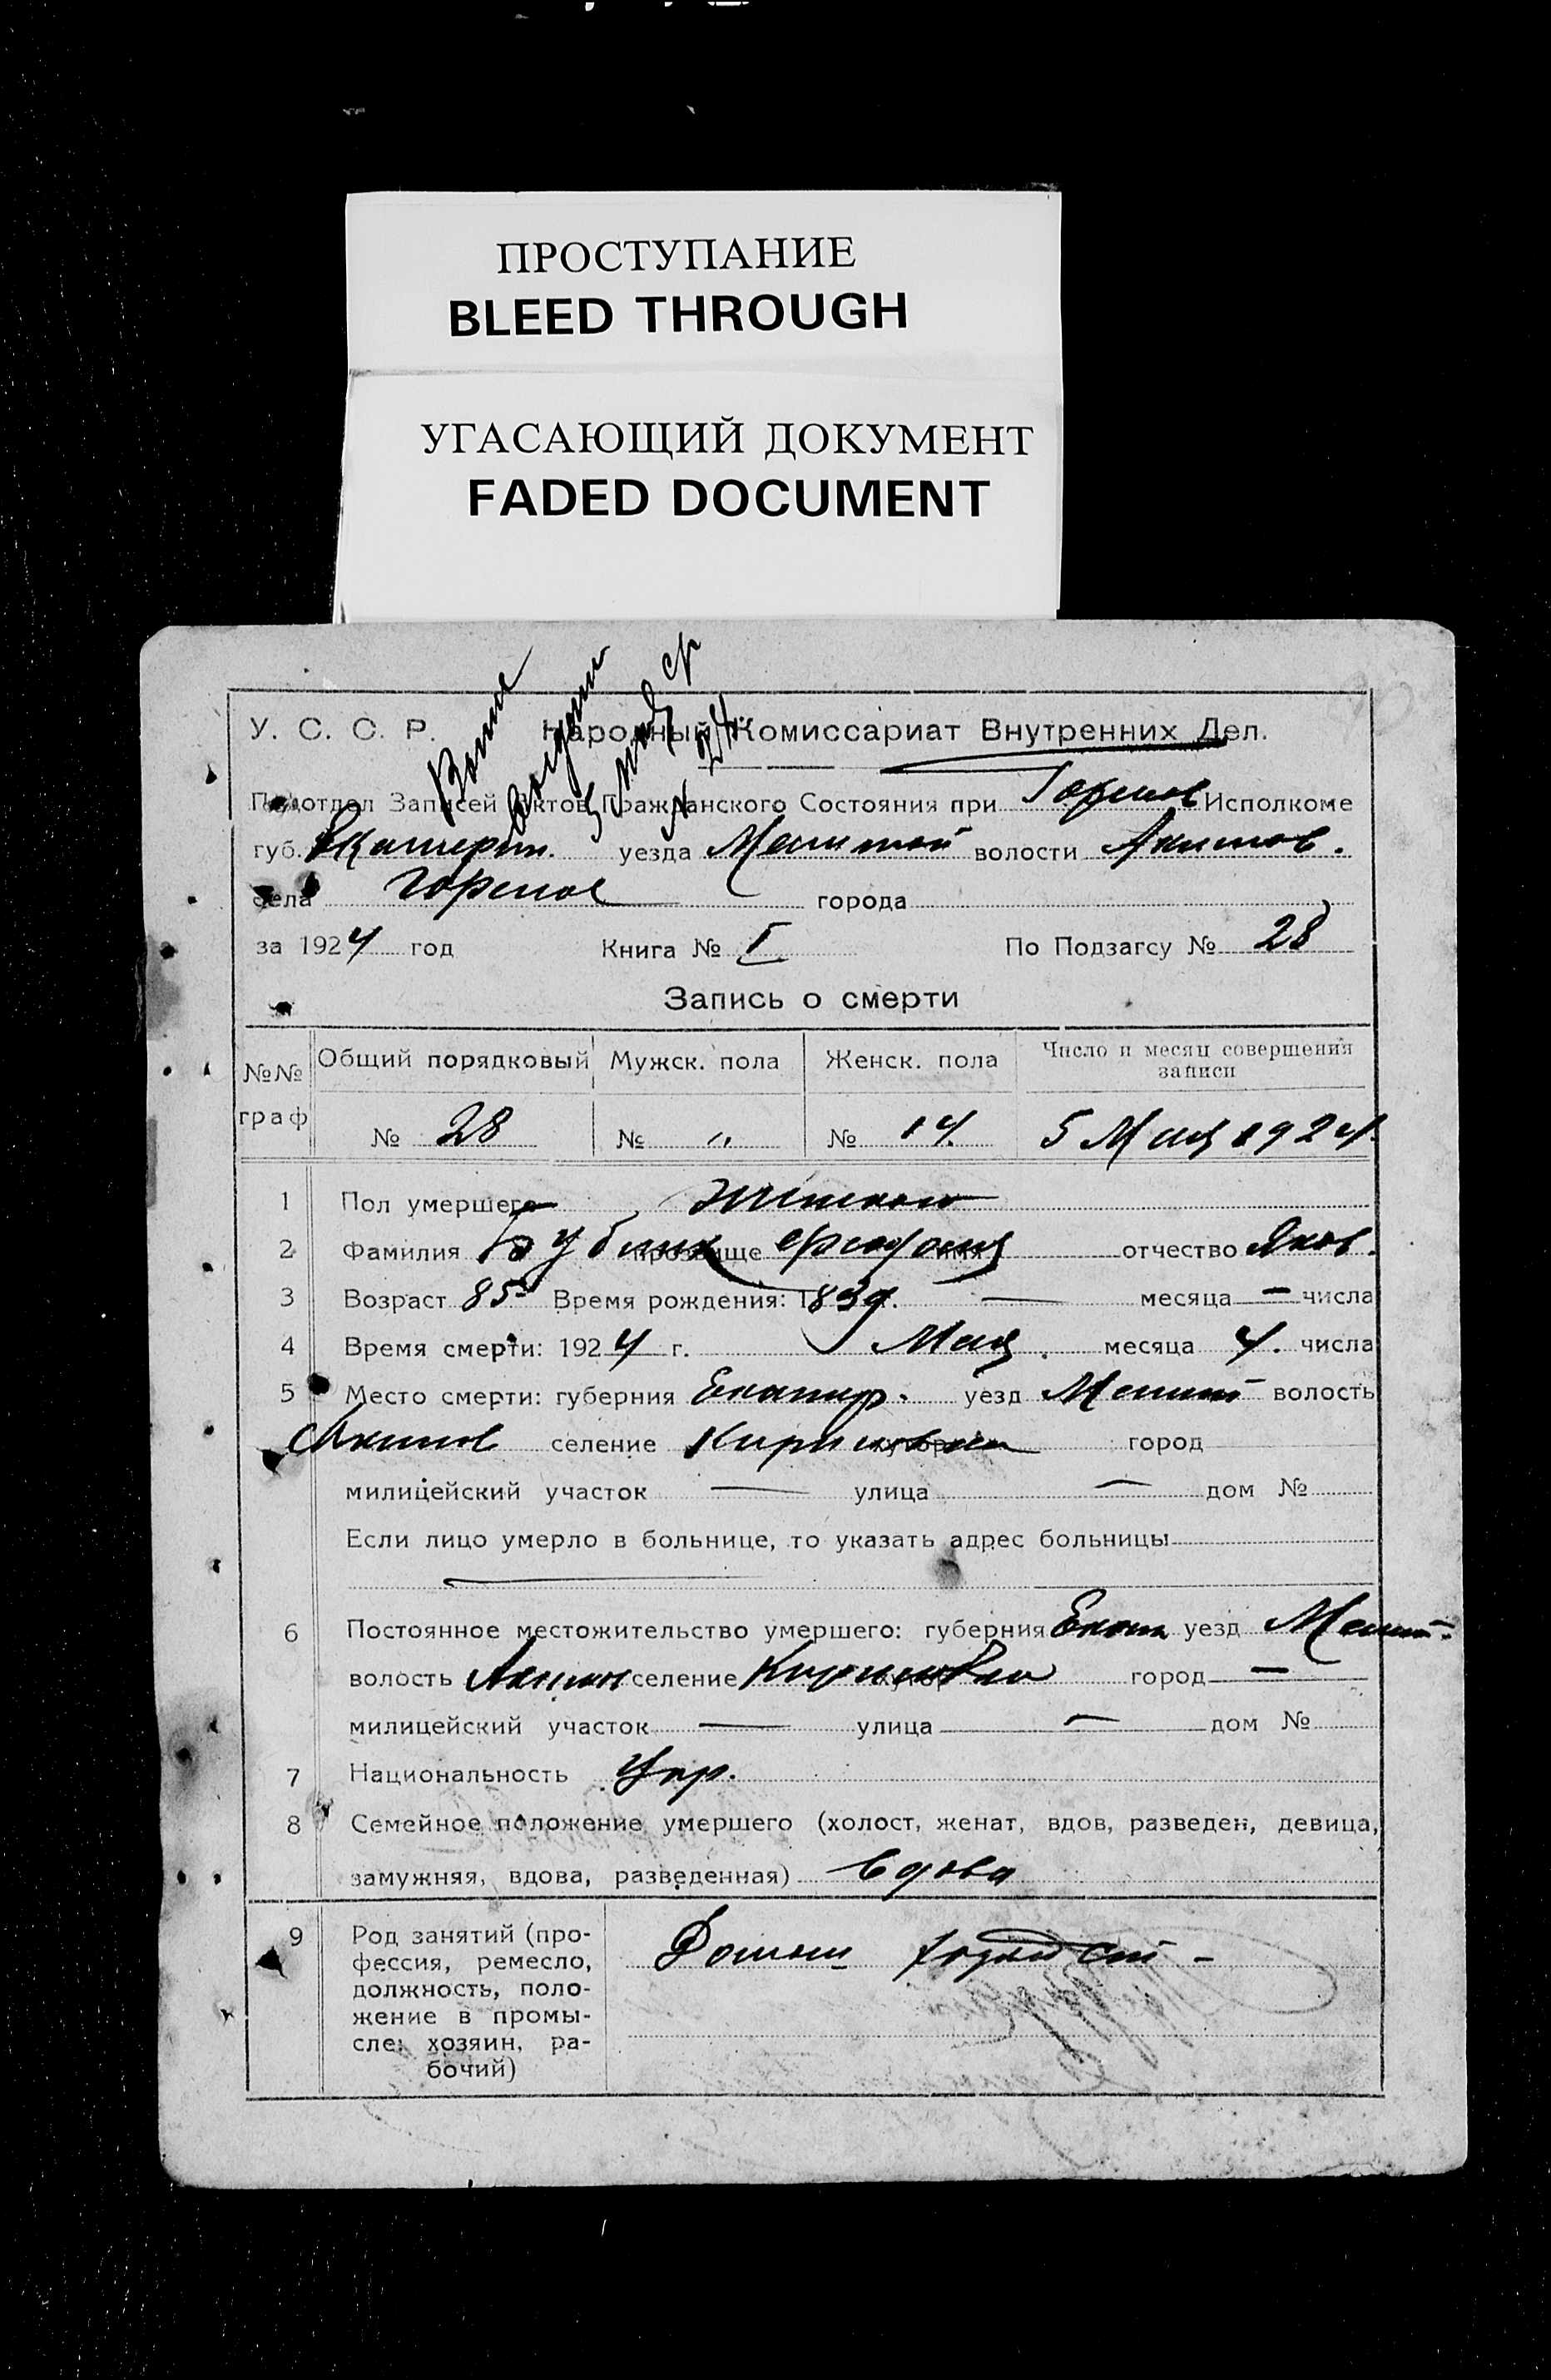 ПРОСТУПАНИЕ
BLEED THROUGH
УГАСАЮЩИЙ ДОКУМЕНТ
FADED DOCUMENT
У. С. С. Р. Народный Комиссариат Внутренних Дел.
Подотдел Записей Актов Гражданского Состояния при Исполкоме
губ. Екатерин. уезда волости Акимов.
села города
за 1924 год Книга № I По Подзагсу № 28
Запись о смерти
№№ граф Общий порядковый Мужск. пола Женск. пола Число и месяц совершения записи
№ 28 № „ № 14. 5 Мая 1924.
1 Пол умершего
2 Фамилия прозвище имя отчество Яков.
3 Возраст 85 Время рождения: 1839. — месяца — числа
4 Время смерти: 1924 г. Мая. месяца 4. числа
5 Место смерти: губерния Екатер. уезд Мелит волость
Акимов селение город
милицейский участок — улица — дом №
Если лицо умерло в больнице, то указать адрес больницы
6 Постоянное местожительство умершего: губерния Екат уезд Мелит.
волость Акимов селение город —
милицейский участок — улица — дом №
7 Национальность Укр.
8 Семейное положение умершего (холост, женат, вдов, разведен, девица,
замужняя, вдова, разведенная) вдова
9 Род занятий (про-
фессия, ремесло,
должность, поло-
жение в промы-
сле: хозяин, ра-
бочий)
Домаш